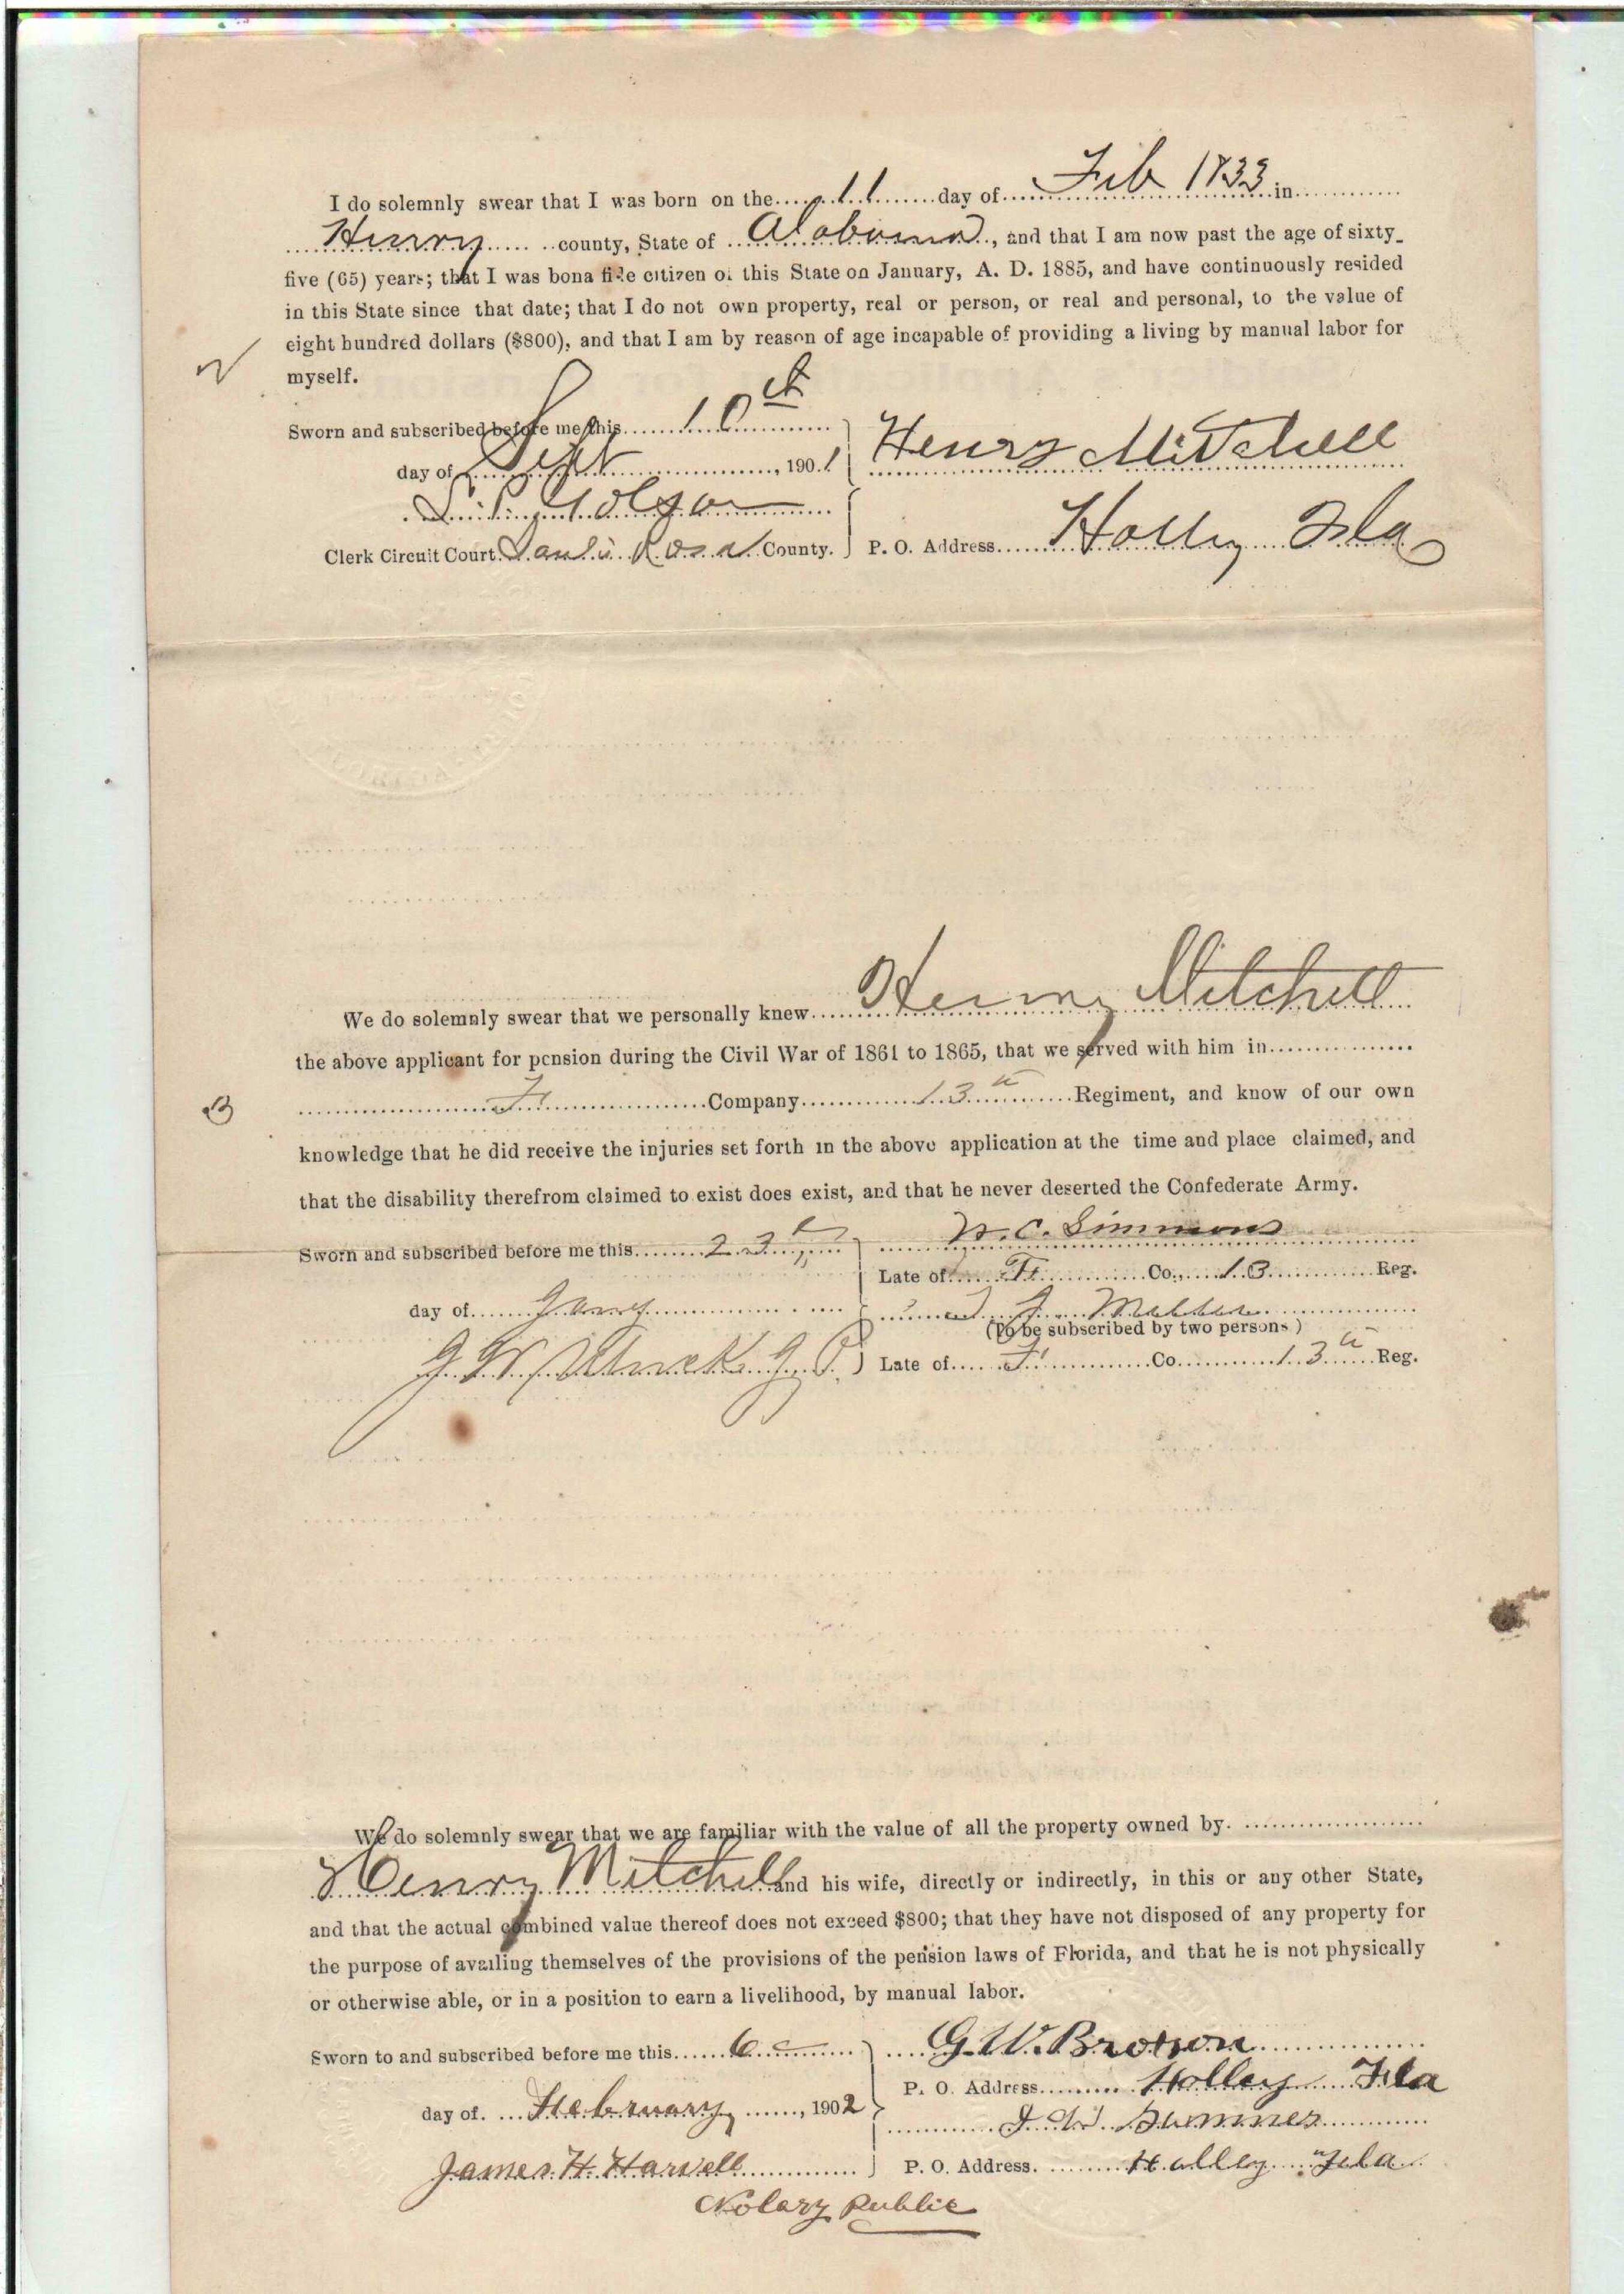 I do solemnly swear that I was born on the 11 day of Feb 1833 in
Henry county, State of Alabama, and that I am now past the age of sixty-
five (65) years; that I was bona fide citizen of this State on January, A. D. 1885, and have continuously resided
in this State since that date; that I do not own property, real or person, or real and personal, to the value of
eight hundred dollars ($800), and that I am by reason of age incapable of providing a living by manual labor for
myself.
2
Sworn and subscribed before me this 10th
day of Sept, 1901
Henry Mitchell
Golson
Clerk Circuit Court Santa Rosa County.
P. O. Address Holley Fla
We do solemnly swear that we personally knew Henry Mitchell
the above applicant for pension during the Civil War of 1861 to 1865, that we served with him in
F Company 13th Regiment, and know of our own
3
knowledge that he did receive the injuries set forth in the above application at the time and place claimed, and
that the disability therefrom claimed to exist does exist, and that he never deserted the Confederate Army.
Sworn and subscribed before me this 23
W. C. Simmons
Late of F Co., 13 Reg.
day of Jany
(To be subscribed by two persons)
J. P.
Late of F Co 13th Reg.
We do solemnly swear that we are familiar with the value of all the property owned by.
Henry Mitchell and his wife, directly or indirectly, in this or any other State,
and that the actual combined value thereof does not exceed $800; that they have not disposed of any property for
the purpose of availing themselves of the provisions of the pension laws of Florida, and that he is not physically
or otherwise able, or in a position to earn a livelihood, by manual labor.
Sworn to and subscribed before me this 6
G. W. Brown
P. O. Address Holley Fla
day of. February, 1902
J. W. Sumner
James H. Harvell
P. O. Address. Holley Fla
Notary Public